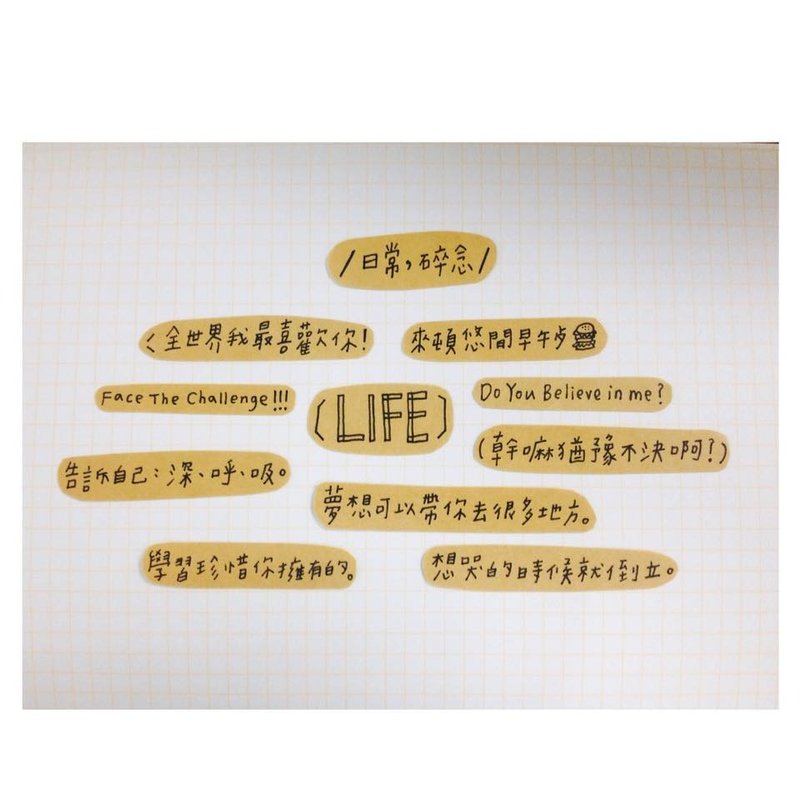 /日常,碎念/
〈全世界我最喜歡你!
來頓悠閒早午歺
Face The Challenge!!!
(LIFE)
Do You Believe in me?
(幹嘛猶豫不決啊?)
告訴自己:深、呼、吸。
夢想可以帶你去很多地方。
學習珍惜你擁有的。
想哭的時候就倒立。